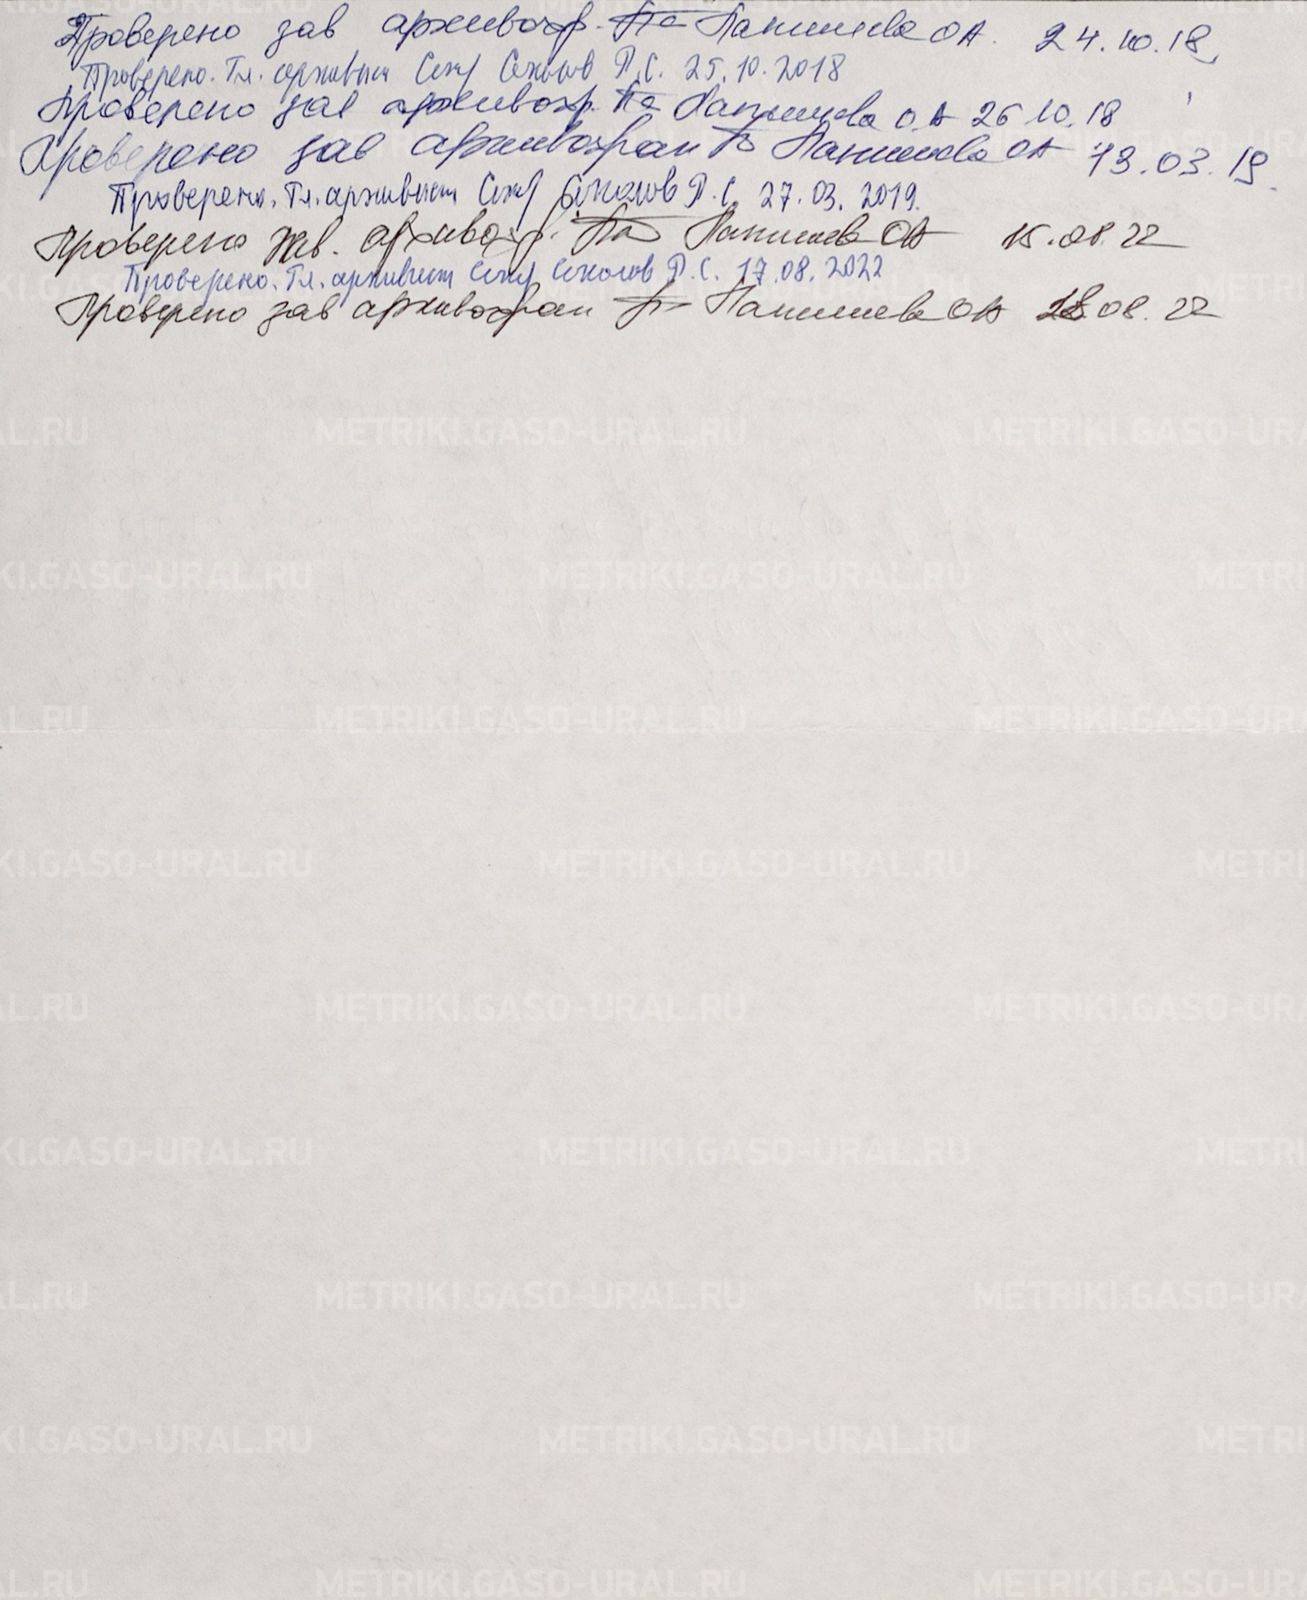 Проверено зав архивохр. Папишева ОА. 24.10.18
Проверено. Гл. архивист Соколов Р.С. 25.10.2018
Проверено зав архивохр. Папишева О.А 26 10.18
Проверено зав архивохран Папишева ОА 13.03.19.
Проверено. Гл. архивист Соколов Р.С. 27.03.2019.
Проверено зав. архивохр. Папишева ОА 15.08.22
Проверено. Гл. архивист Соколов Р.С. 17.08.2022
Проверено зав архивохран Папишева ОА 18.08.22
METRIKI.GASO-URAL.RU